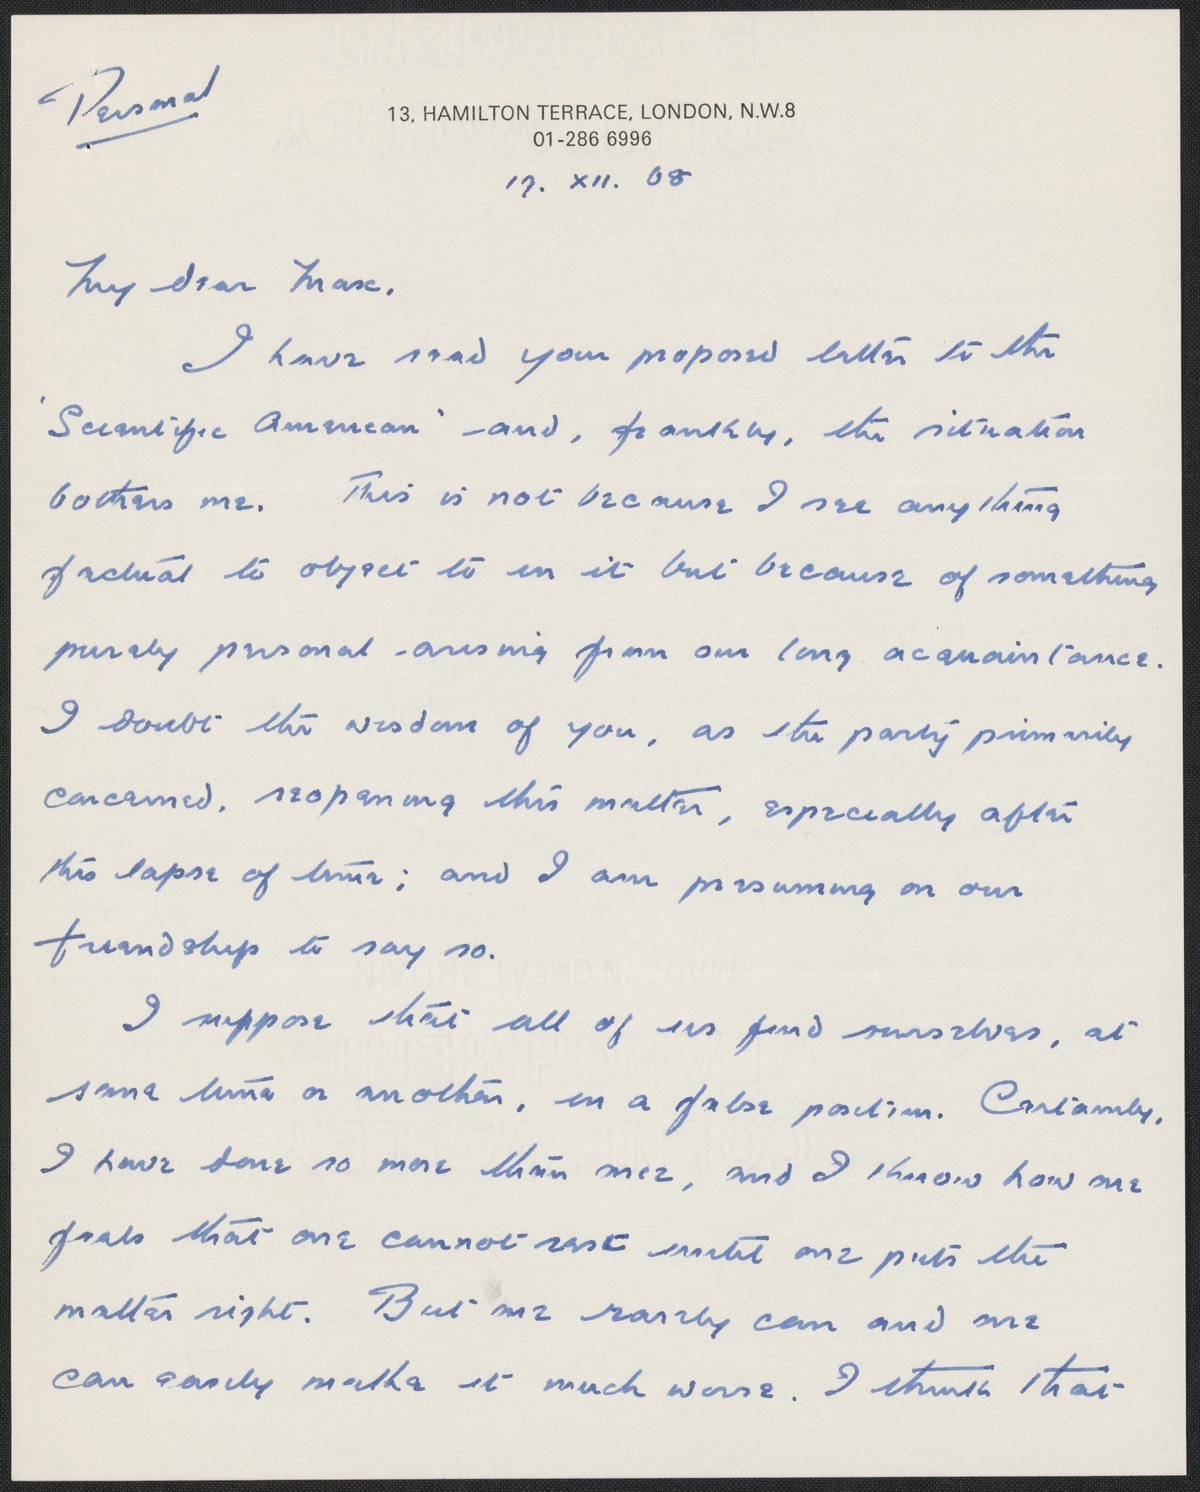 Personal
13, HAMILTON TERRACE, LONDON, N.W.8
01-286 6996
17. XII. 68
My dear Max,
I have read your proposed letter to the
'Scientific American' and, frankly, the situation
bothers me. This is not because I see anything
factual to object to in it but because of something
purely personal arising from our long acquaintance.
I doubt the wisdom of you, as the party primarily
concerned, reopening this matter, especially after
this lapse of time; and I am presuming on our
friendship to say so.
I suppose that all of us find ourselves, at
some time or another, in a false position. Certainly,
I have done so more than once, and I know how one
feels that one cannot rest until one puts the
matter right. But one rarely can and one
can easily make it much worse. I think that